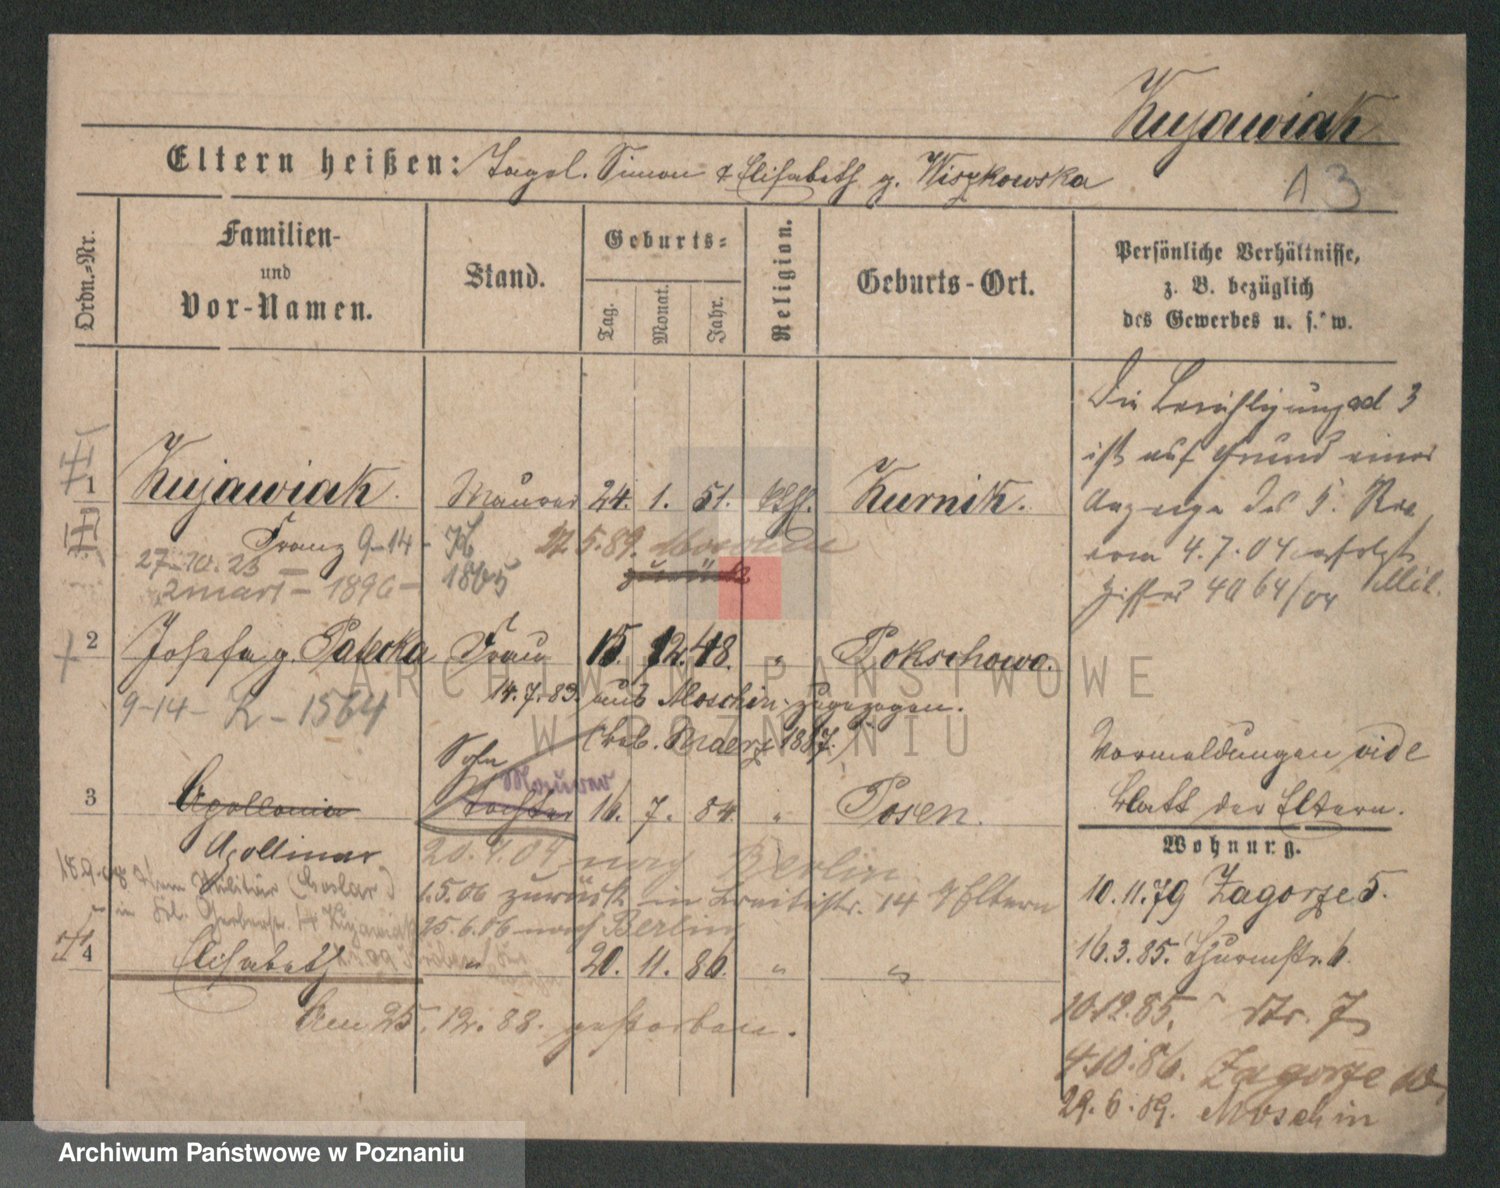 Kujawiak
13
Eltern heißen: Tagel. Simon & Elisabeth g. Wiszkowska
Ordn.=Nr.
Familien-
und
Vor-Namen.
Stand.
Geburts=
Tag.
Monat.
Jahr.
Religion.
Geburts-Ort.
Persönliche Verhältnisse,
z. B. bezüglich
des Gewerbes u. s. w.
Die Berichtigung ad 3
ist auf Grund einer
Anzeige des
vom 4.7.04 erfolgt
4064/04
1 Kujawiak. Maurer 24. 1. 51. kth. Kurnik.
Franz 9-14- K 5.89.
27.10.23 -
1896 - 1865
zurück
2 Josefa g. Patecka Frau 15. 12. 48. " Pokschowo.
14.7.83. aus Moschin zugezogen.
9-14- K - 1564
Sohn
Maurer
3 Apollonia Tochter 16. 7. 84. " Posen.
Apollinar
20.4.04 nach Berlin
1.5.06 zurück in Breitestr. 14 Eltern
25.6.06 nach Berlin
4 Elisabeth " 20. 11. 86. " "
Am 25.12.88. gestorben.
Vormeldungen vide
Blatt der Eltern.
Wohnung.
10.11.79 Zagorze 5.
16.3.85. Thurmstr. 6.
10.12.85. " Str. 7
4.10.86. Zagorze
29.6.89. Moschin
ARCHIWUM PAŃSTWOWE
W POZNANIU
Archiwum Państwowe w Poznaniu